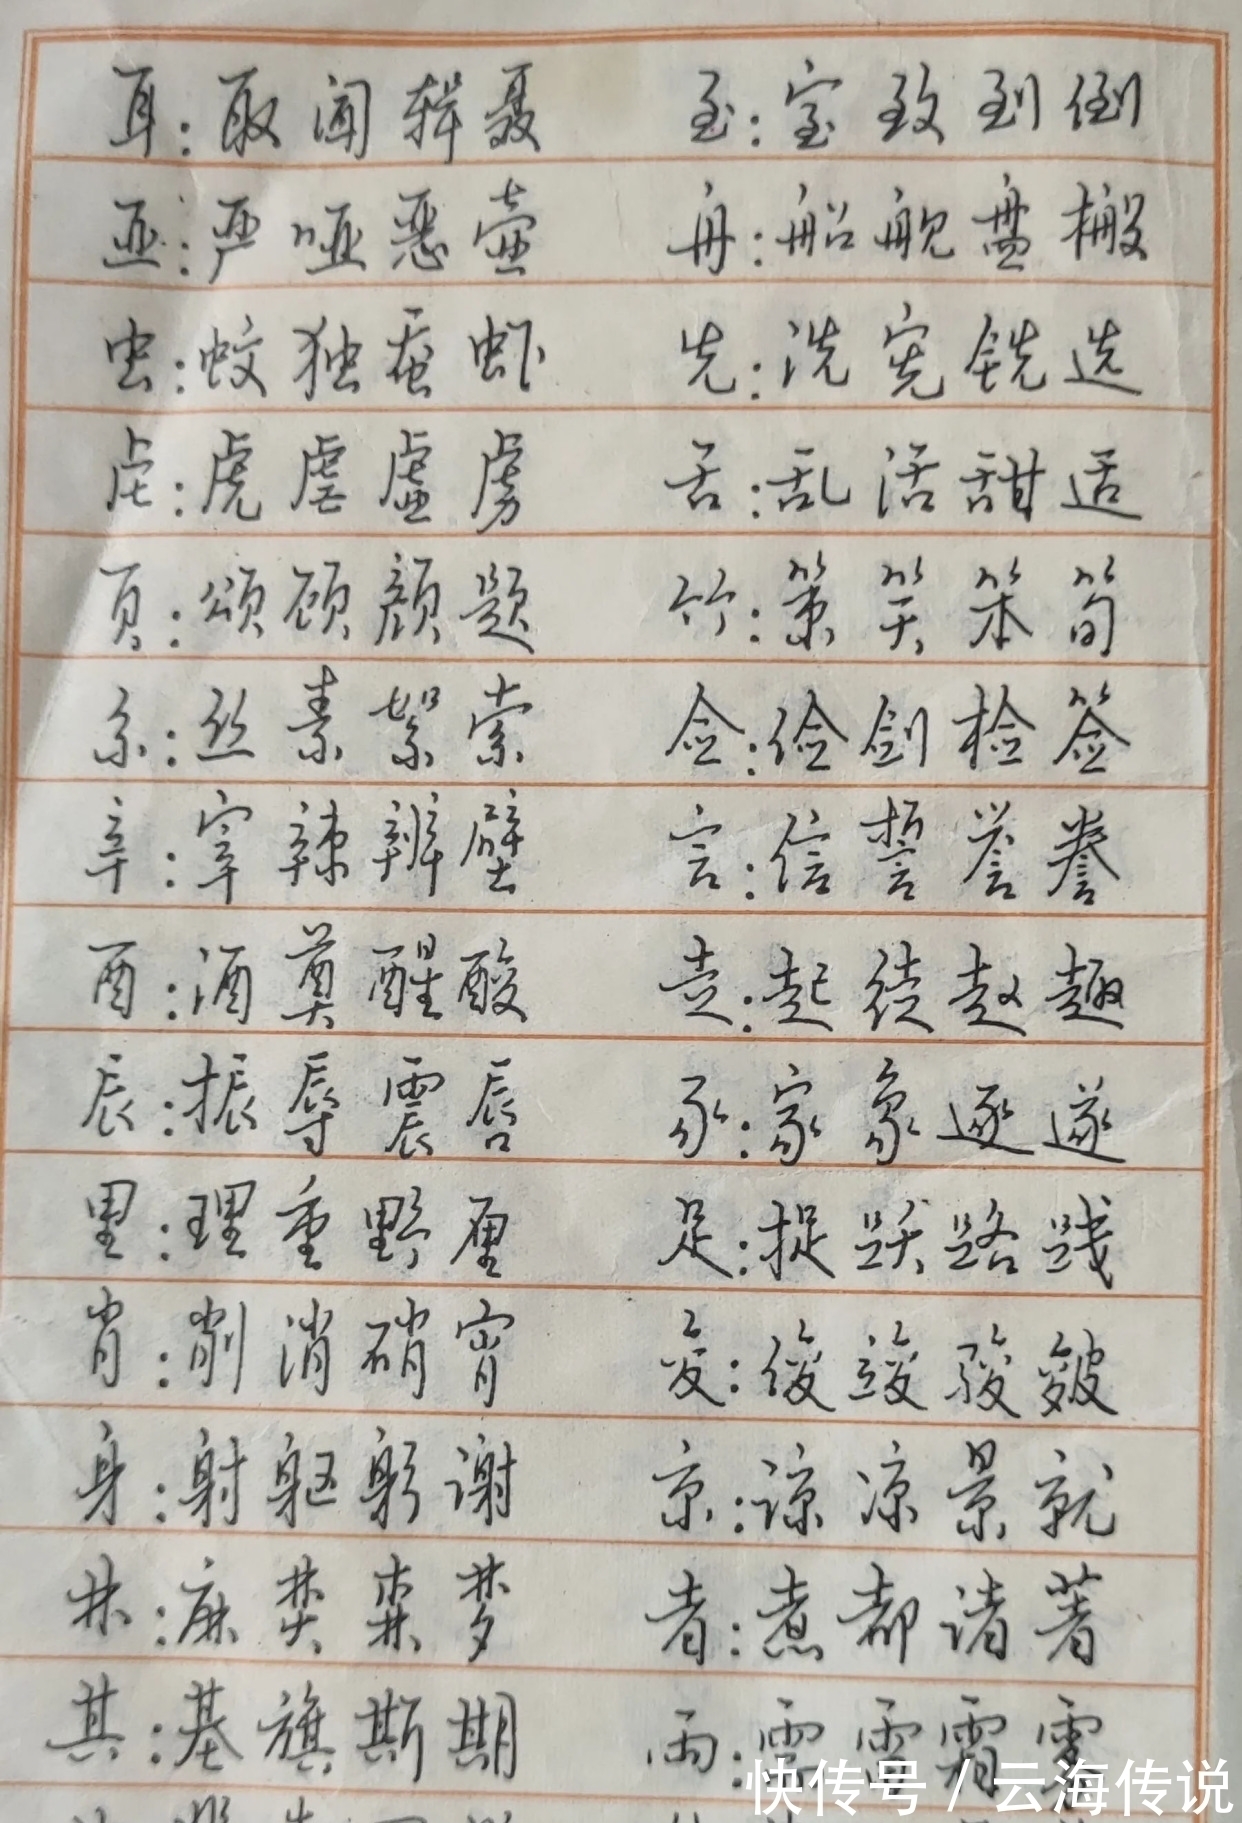 耳：取闻辑聂 至：室致到倒
亚：严哑恶壶 舟：船舰盘搬
虫：蚊独蚕虾 先：洗宪铣选
虍：虎虐虚虏 舌：乱活甜适
页：颂顾颜题 竹：策笑笨筍
糸：丝素絮索 佥：俭剑检签
辛：宰辣辨壁 言：信誓誉誊
酉：酒奠醒酸 走：起徒赵趣
辰：振辱震唇 豕：家象逐遂
里：理重野厘 足：捉跃路践
肖：削消硝宵 夋：俊竣骏皴
身：射躯躬谢 京：谅凉景就
林：麻焚森梦 者：煮都诸著
其：基旗斯期 雨：雪雷霜
快传号 / 云海传说